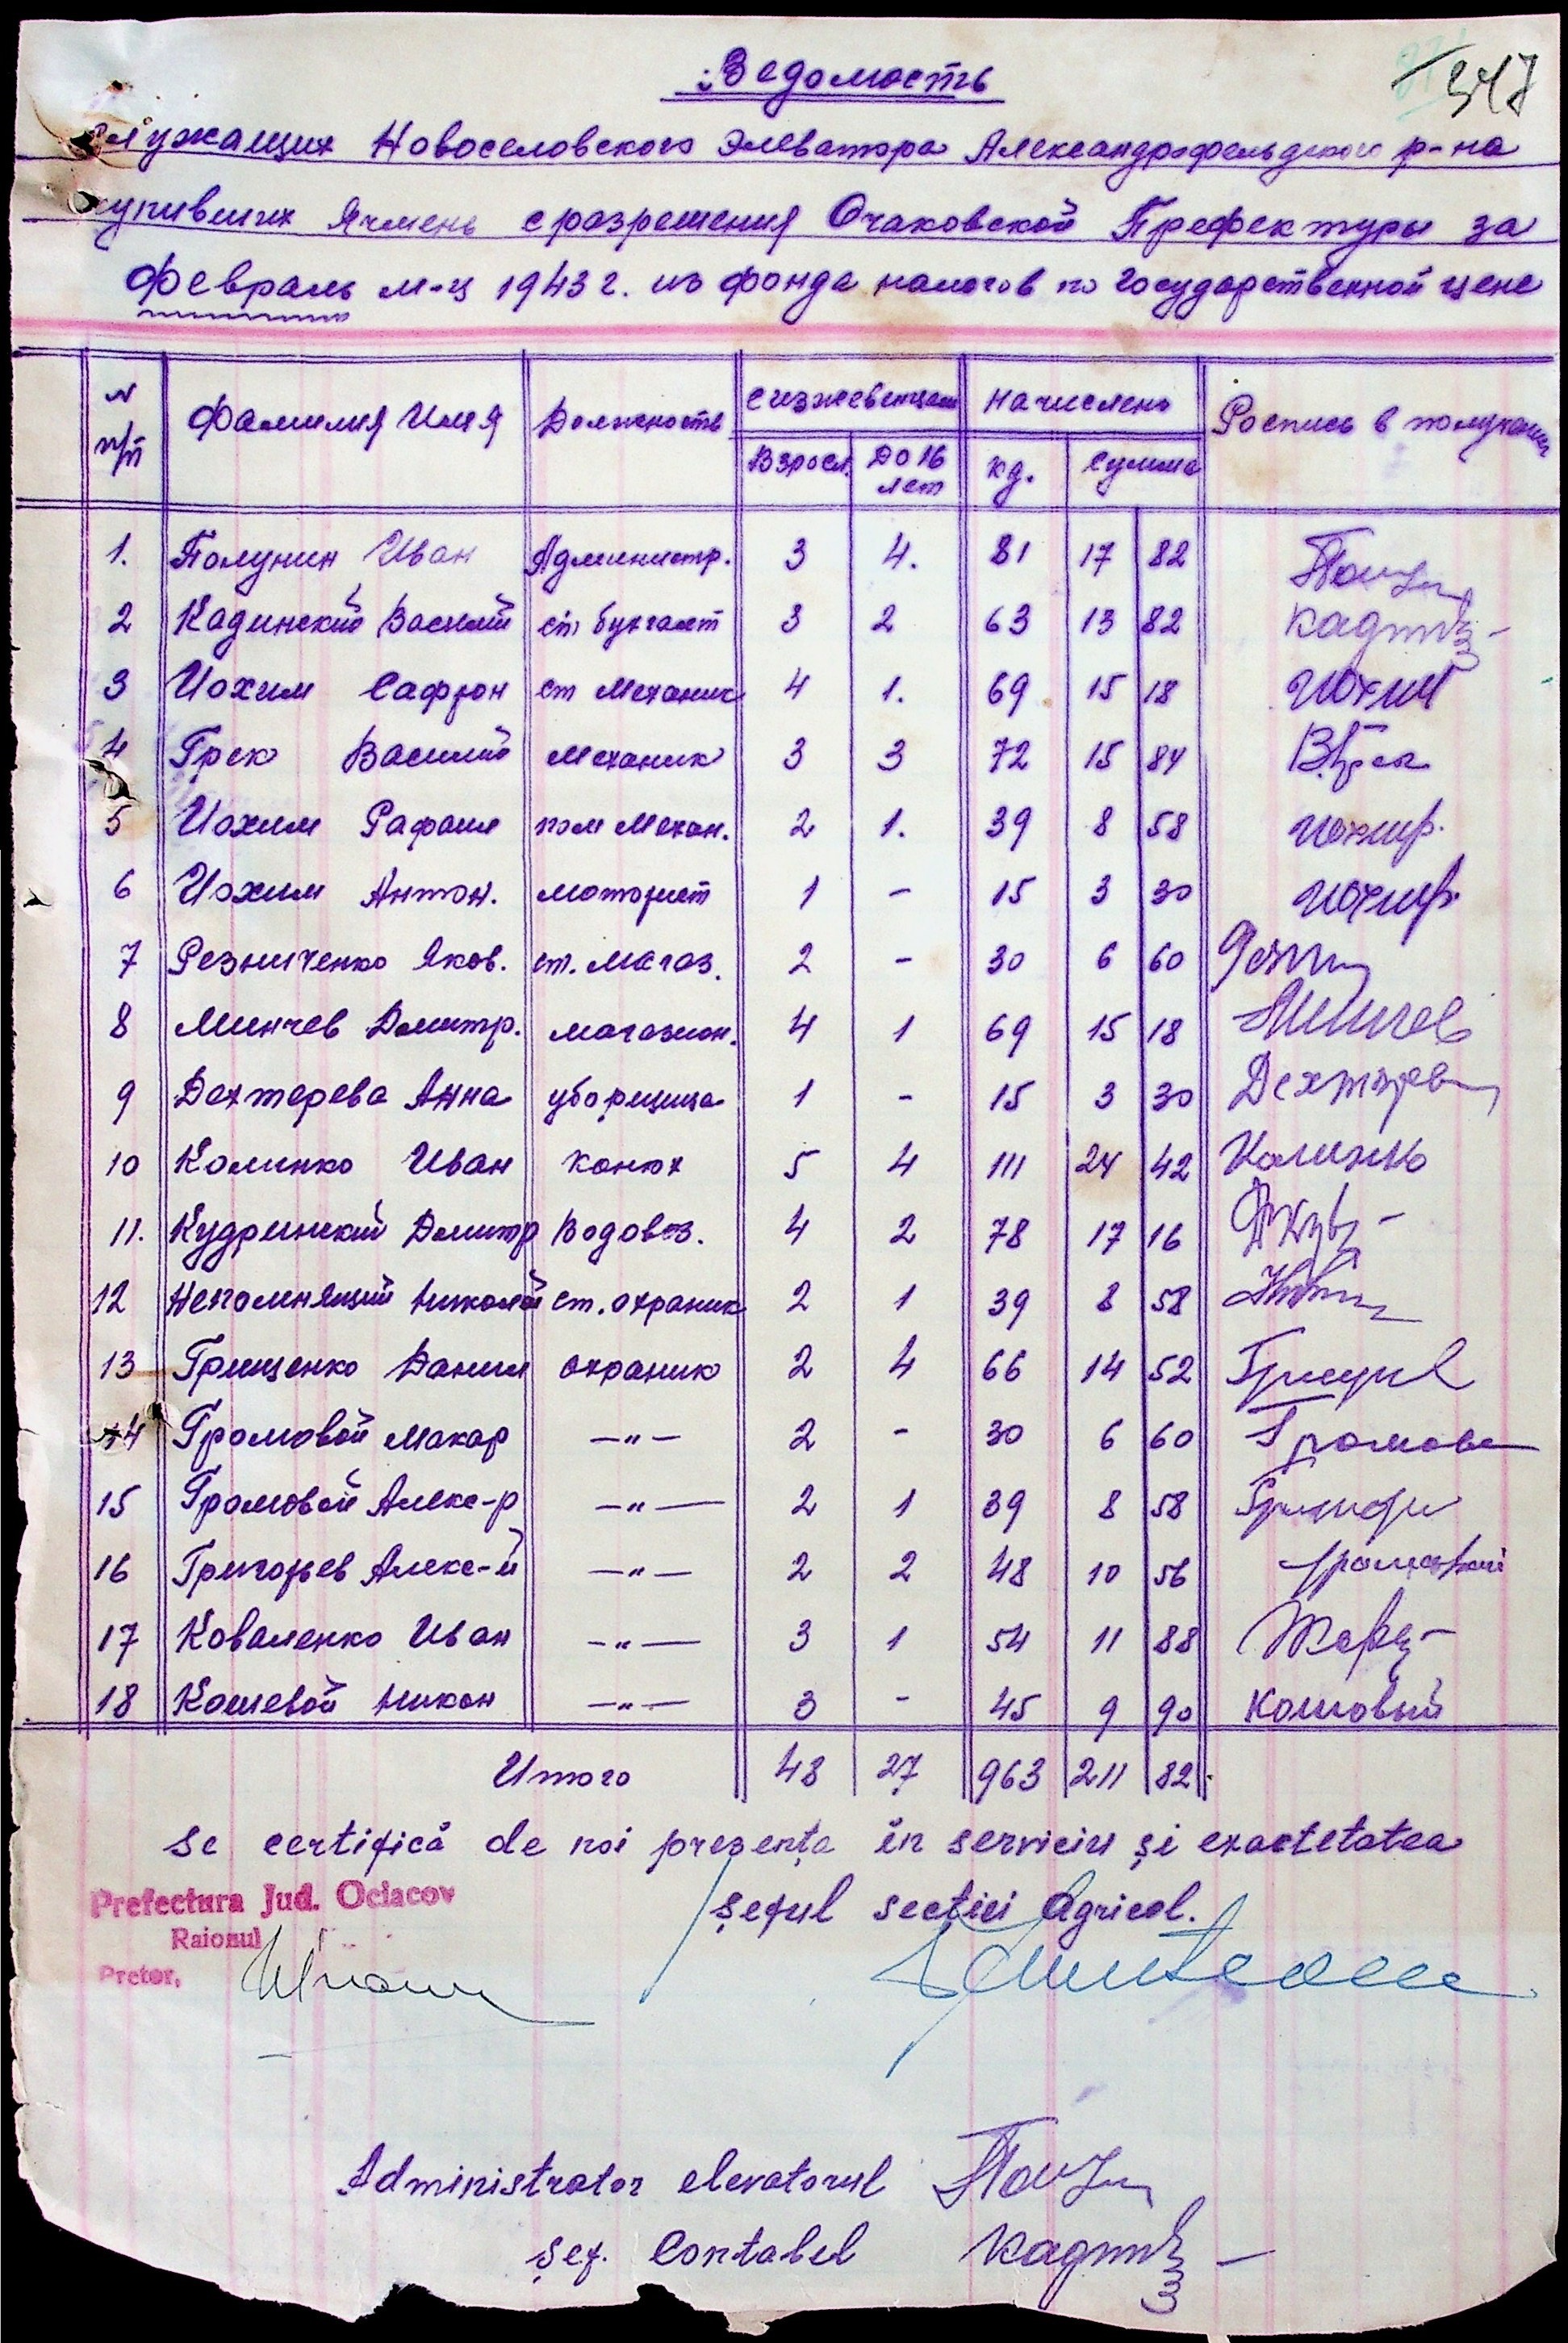 Ведомость
347
Служащих Новоселовского Элеватора Александрофельдского р-на
купивших Ячмень с разрешения Очаковской Префектуры за
февраль м-ц 1943 г. из фонда налогов по Государственной цене
N п/п Фамилия Имя Должность С иждевенцам Начислено Роспись в получении
Взросл. До 16 лет кг. Сумма
1. Полунин Иван Администр. 3 4. 81 17 82
2 Кадинский Василий ст бухгалт 3 2 63 13 82
3 Иохим Сафрон ст Механик 4 1. 69 15 18 Иохим
4 Грек Василий Механик 3 3 72 15 84
5 Иохим Рафаил пом Механ. 2 1. 39 8 58
6 Иохим Антон. моторист 1 - 15 3 30
7 Резниченко Яков. ст. магаз. 2 - 30 6 60
8 Минчев Дмитр. магазион. 4 1 69 15 18 Минчев
9 Дехтерева Анна уборщица 1 - 15 3 30
10 Калинко Иван конюх 5 4 111 24 42
11. Кудринский Дмитр Водовоз. 4 2 78 17 16
12 Непомнящий Николай ст. охраник 2 1 39 8 58
13 Грищенко Данил охраник 2 4 66 14 52
14 Громовой Макар —"— 2 - 30 6 60
15 Громовой Алекс-р —"— 2 1 39 8 58
16 Григорьев Алекс-й —"— 2 2 48 10 56
17 Коваленко Иван —"— 3 1 54 11 88
18 Кошевой Никон —"— 3 - 45 9 90 Кошовый
Итого 48 27 963 211 82
Se certifică de noi prezența în serviciu și exactetatea
Prefectura Jud. Ociacov
Șeful secției Agricol.
Raionul
Pretor,
Administrator elevatorul
Șef. Contabel